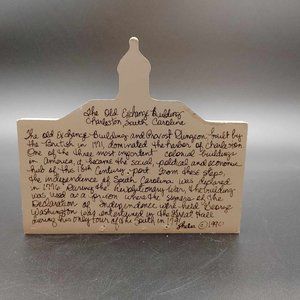 The Old Exchange Building
Charleston South Carolina
The Old Exchange Building and Provost Dungeon built by
the British in 1771, dominated the harbor of Charleston
One of the three most important colonial buildings
in America, it became the social, political and economic
hub of this 18th Century port. From these steps,
the independence of South Carolina was declared
in 1776. During the Revolutionary War, the building
was used as a prison where the signers of The
Declaration of Independence were held. George
Washington was entertained in the Great Hall
during his only tour of the South in 1791.
©1990